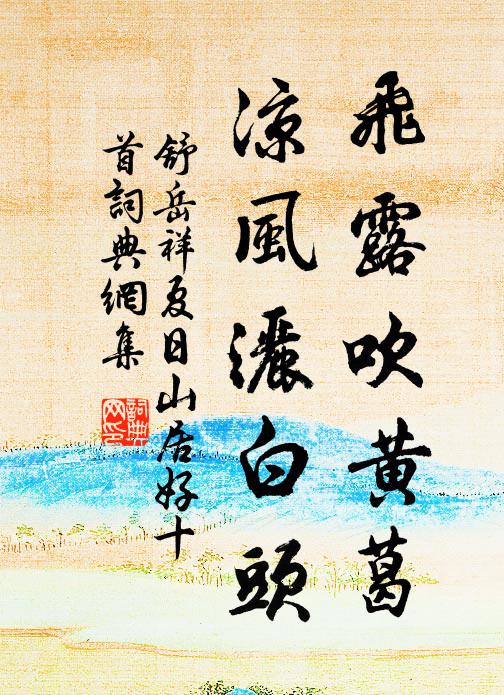 飛露吹黃葛
涼風灑白頭
舒岳祥夏日山居好十
首詞典網集
詞典
网印